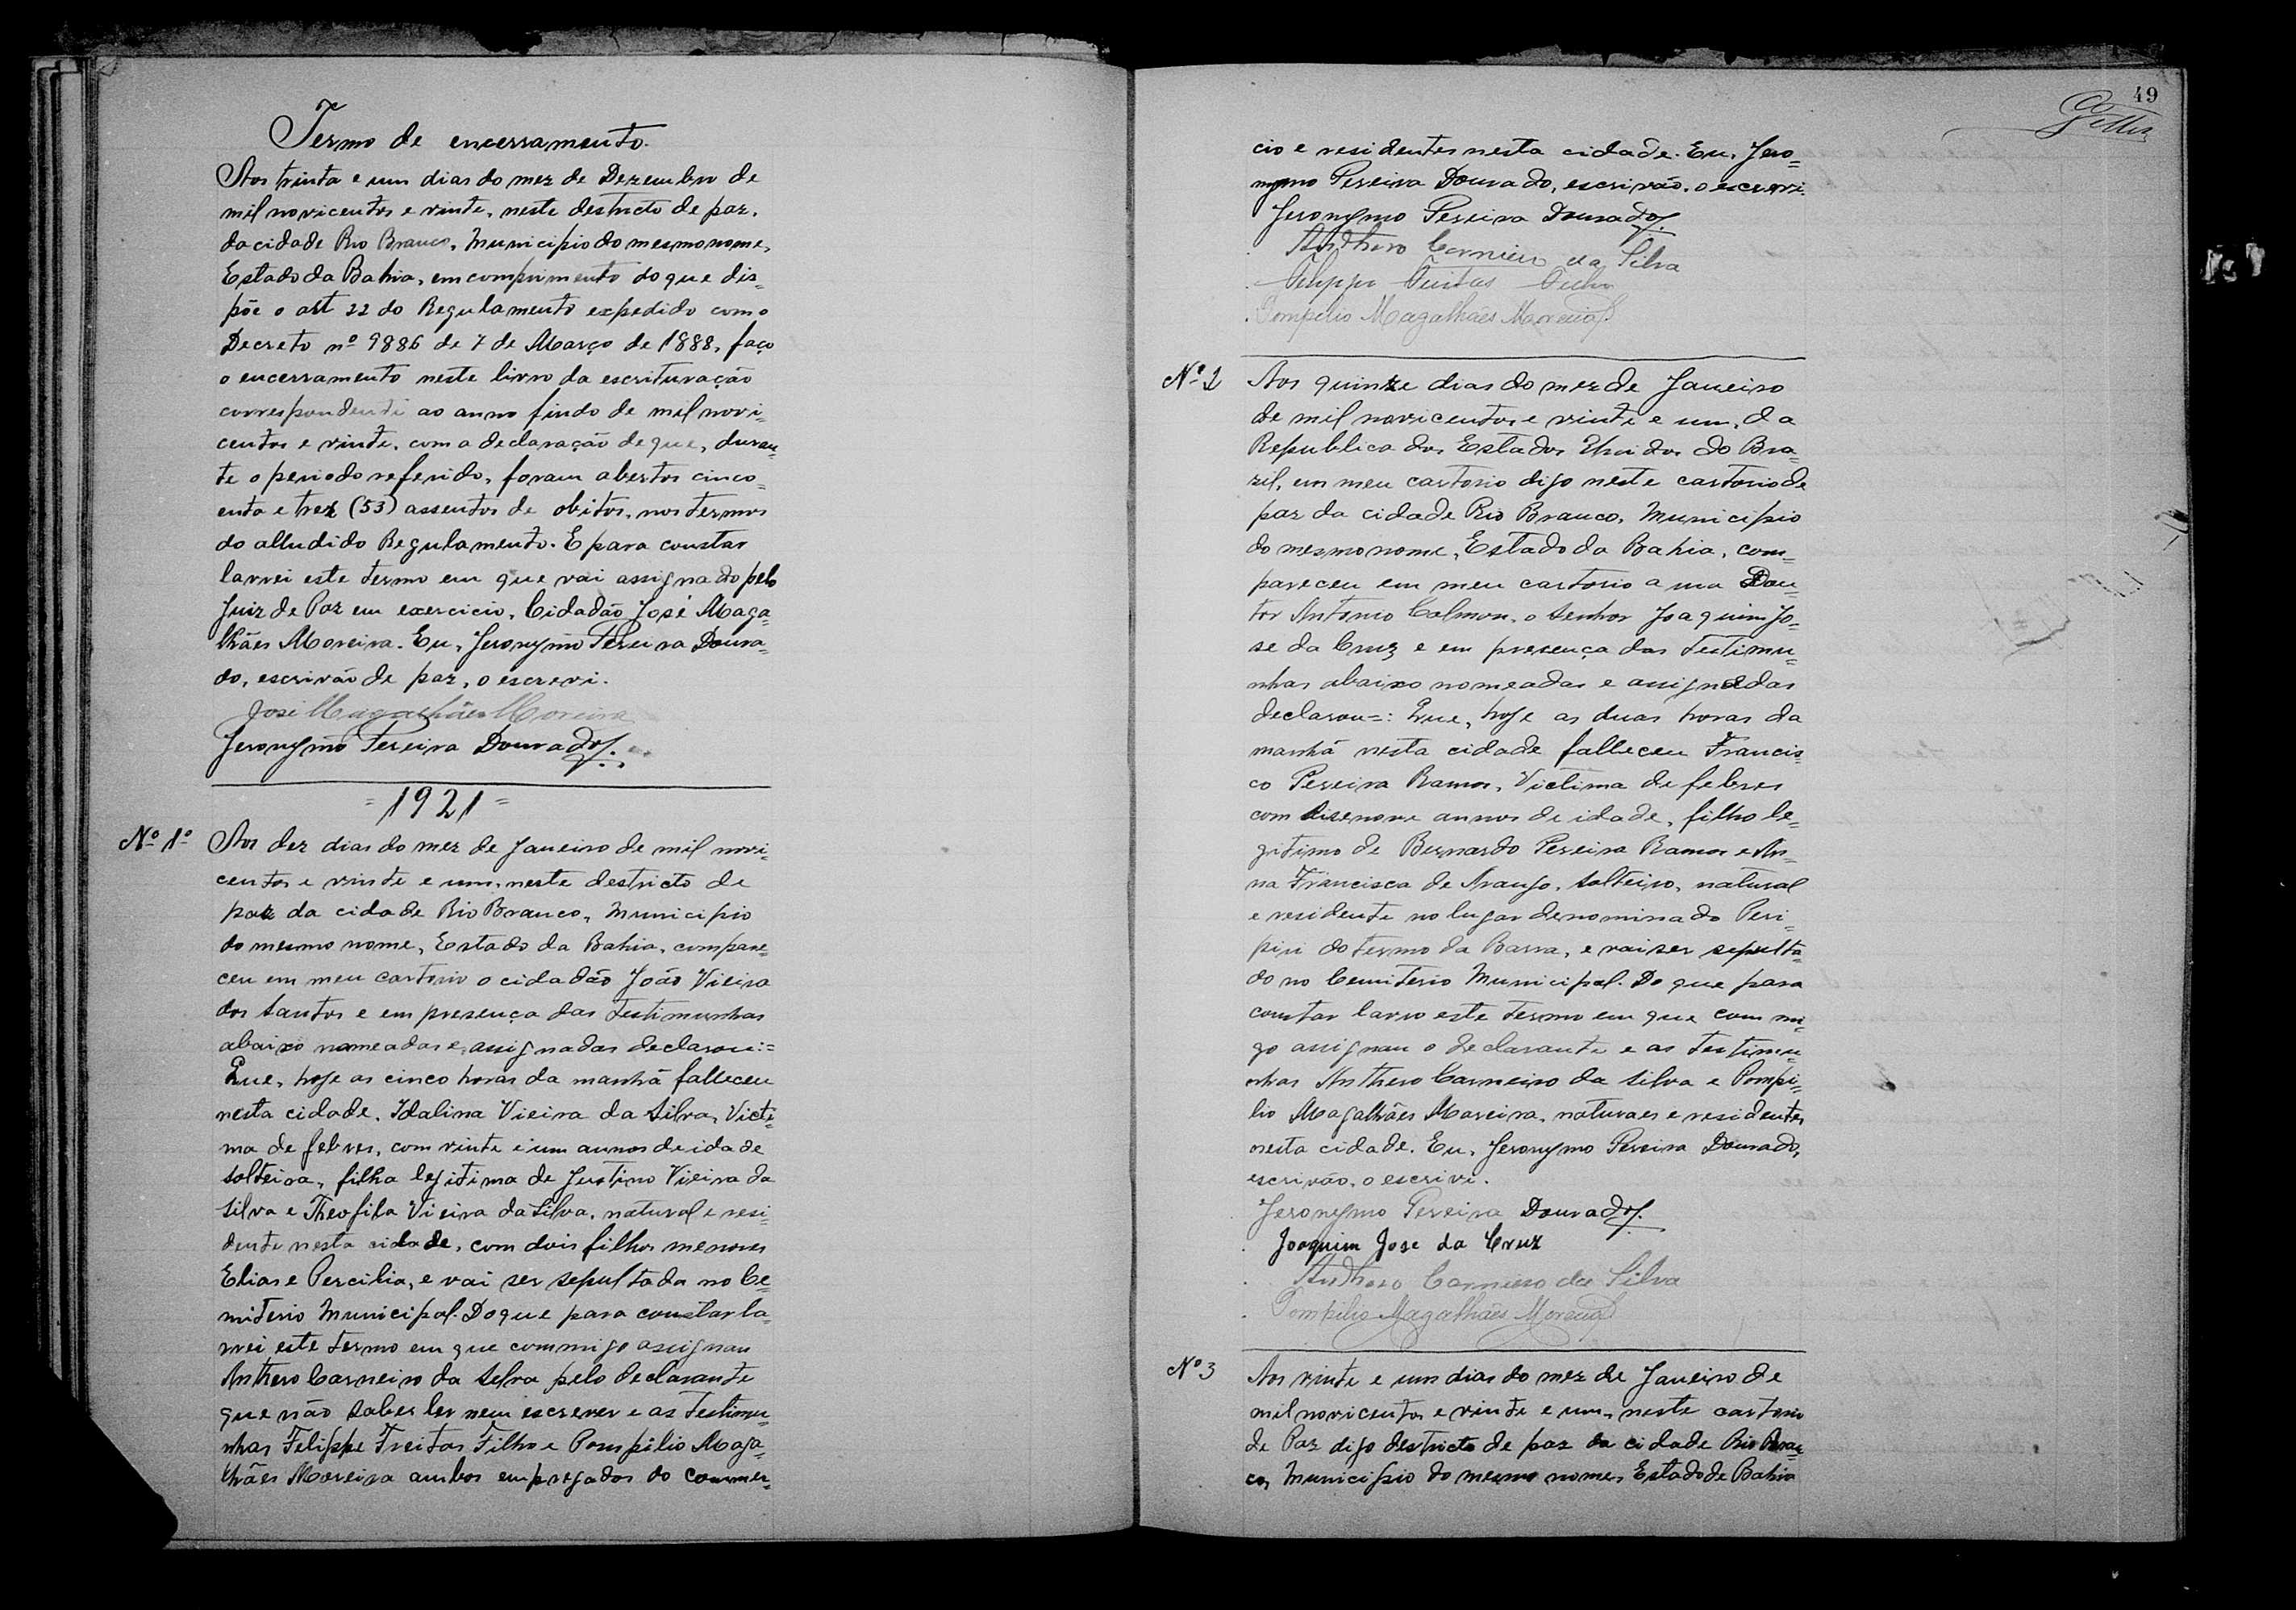 Termo de encerramento.
Aos trinta e um dias do mez de Dezembro de
mil novicentos e vinte, neste destricto de paz,
da cidade Rio Branco, Municipio do mesmo nome,
Estado da Bahia, em comprimento do que dis-
põe o art 22 do Regulamento expedido com o
Decreto nº 9886 de 7 de Março de 1888, faço
o encerramento neste livro da escrituração
correspondente ao anno findo de mil novi-
centos e vinte, com a declaração de que, duran-
te o periodo referido, foram abertos cinco-
enta e trez (53) assentos de obitos, nos termos
do alludido Regulamento. E para constar
lavrei este termo em que vai assignado pelo
Juiz de Paz em exercicio, Cidadão José Maga-
lhães Moreira. Eu, Jeronymo Pereira Doura-
do, escrivão de paz, o escrevi.
José Magalhães Moreira
Jeronymo Pereira Dourado
= 1921 =
Nº 1º Aos dez dias do mez de Janeiro de mil novi-
centos e vinte e um, neste destricto de
paz da cidade Rio Branco, Municipio
do mesmo nome, Estado da Bahia, compare-
ceu em meu cartorio o cidadão João Vieira
dos Santos e em presença das testimunhas
abaixo nomeadas e assignadas declarou:=
Que, hoje as cinco horas da manhã falleceu
nesta cidade, Idalina Vieira da Silva, Victi-
ma de febres, com vinte e um annos de idade
solteira, filha legitima de Justino Vieira da
Silva e Theofila Vieira da Silva, natural e resi-
dente nesta cidade, com dois filhos menores
Elias e Percilia, e vai ser sepultada no Ce-
miterio Municipal. Do que para constar la-
vrei este termo em que commigo assignam
Anthero Carneiro da Selva pelo declarante
que não saber ler nem escrever e as testimu-
nhas Felippe Freitas Filho e Pompilio Maga-
lhães Moreira ambos empregados do commer-
49
cio e residentes nesta cidade. Eu, Jero-
nymo Pereira Dourado, escrivão, o escrevi.
Jeronymo Pereira Dourado
Anthero Carneiro da Silva
Felippe Freitas Filho
Pompilio Magalhães Moreira
Nº 2 Aos quinze dias do mez de Janeiro
de mil novicentos e vinte e um, da
Republica dos Estados Unidos do Bra-
zil, em meu cartorio digo neste cartorio de
paz da cidade Rio Branco, Municipio
do mesmo nome, Estado da Bahia, com-
pareceu em meu cartorio a rua Dou-
tor Antonio Calmon, o Senhor Joaquim Jo-
se da Cruz e em presença das testimu-
nhas abaixo nomeadas e assignadas
declarou=: Que, hoje as duas horas da
manhã nesta cidade falleceu Francis-
co Pereira Ramos, Victima de febres
com disenove annos de idade, filho le-
gitimo de Bernardo Pereira Ramos e An-
na Francisca de Araujo, solteiro, natural
e residente no lugar denominado Peri-
piri do termo da Barra, e vai ser sepulta-
do no Cemiterio Municipal. Do que para
constar lavro este termo em que com mi-
go assignam o declarante e as testimu-
nhas Anthero Carneiro da Silva e Pompi-
lio Magalhães Moreira, naturaes e residentes
nesta cidade. Eu, Jeronymo Pereira Dourado,
escrivão, o escrivi.
Jeronymo Pereira Dourado
Joaquim Jose da Cruz
Anthero Carneiro da Silva
Pompilio Magalhães Moreira
Nº 3 Aos vinte e um dias do mez de Janeiro de
mil novicentos e vinte e um, neste cartorio
de Paz digo destricto de paz da cidade Rio Bran-
co, Municipio do mesmo nome, Estado de Bahia